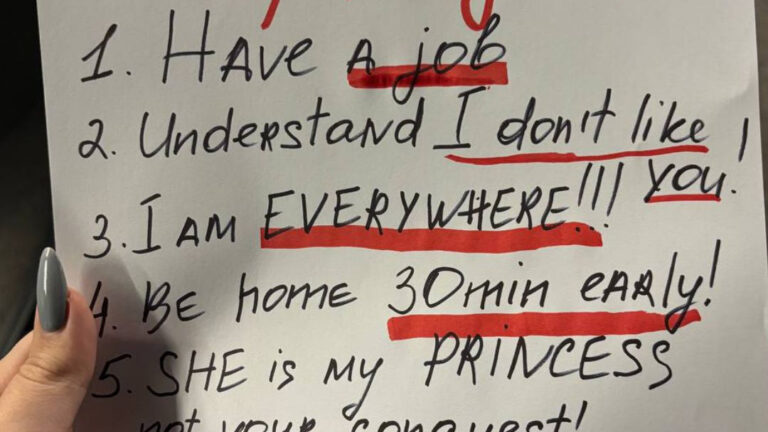 1. HAVE A job
2. Understand I don't like
you!
3. I AM EVERYWHERE!!!
4. BE home 30min EARly!
5. SHE is my PRINCESS
not your conquest!